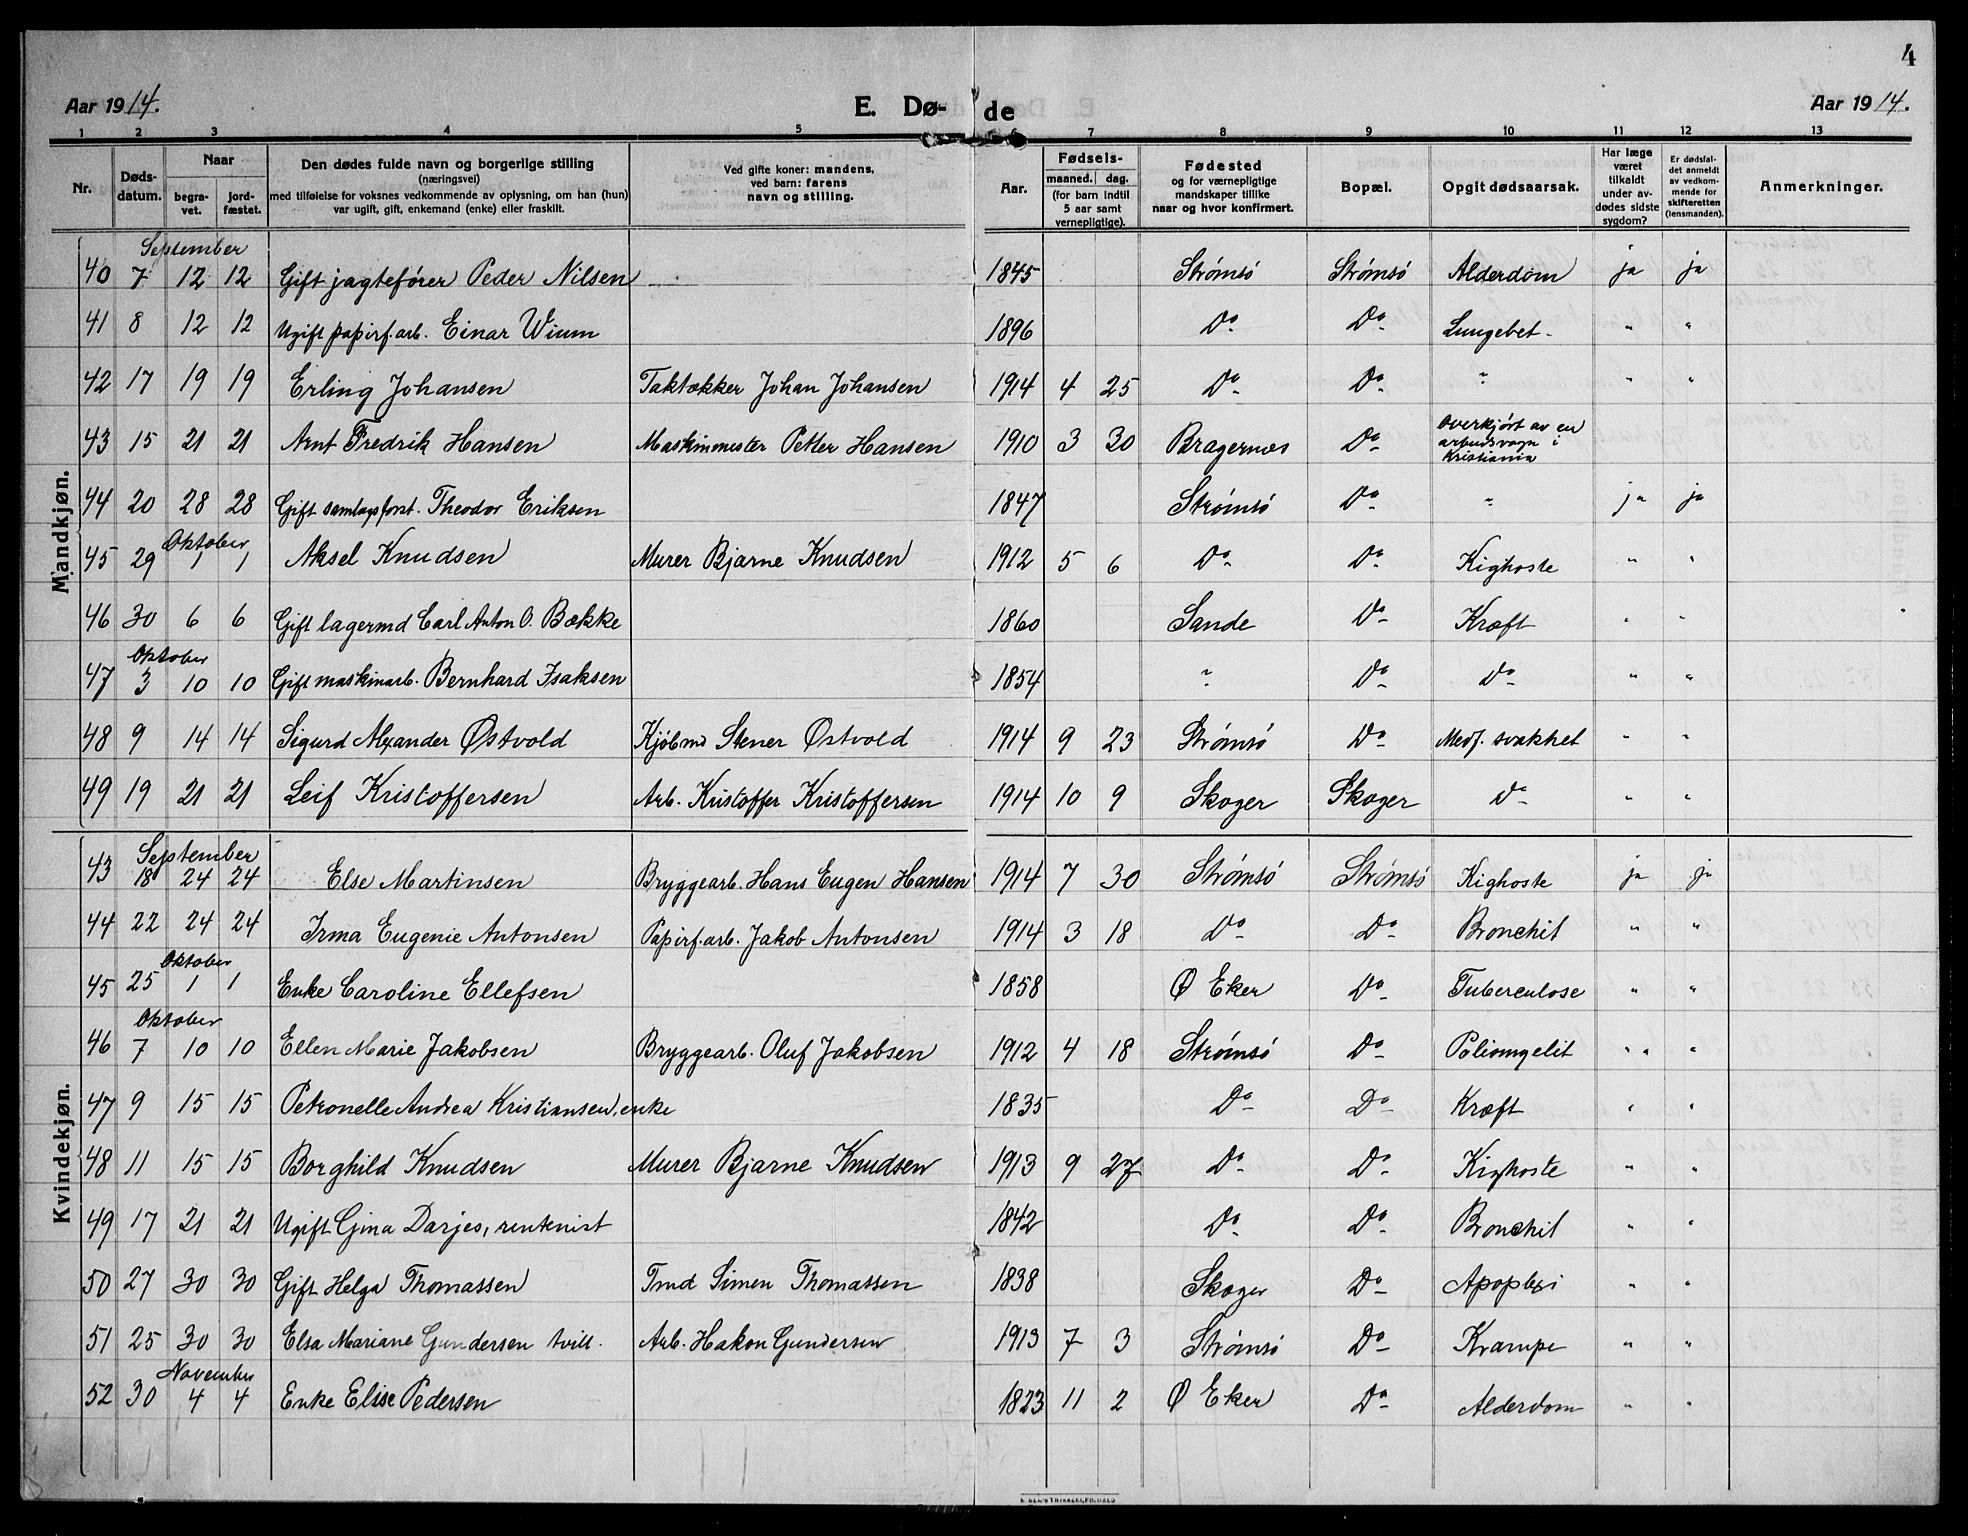 4
Aar 1914. E. Dø- de Aar 1914.
1 2 3 4 5 6 7 8 9 10 11 12 13
Nr. Døds-datum. Naar begra-vet. jord-fæstet. Den dødes fulde navn og borgerlige stilling (næringsvei) med tilføielse for voksnes vedkommende av oplysning, om han (hun) var ugift, gift, enkemand (enke) eller fraskilt. Ved gifte koner: mandens, ved barn: farens navn og stilling. Aar. Fødsels- maaned. dag. (for barn indtil 5 aar samt vernepligtige). Fødested og for værnepligtige mandskaper tillike naar og hvor konfirmert. Bopæl. Opgit dødsaarsak. Har læge været tilkaldt under av-dødes sidste sygdom? Er dødsfal-det anmeldt av vedkom-mende for skifteretten (lensmanden). Anmerkninger.
Mandkjøn.
September
40 7 12 12 Gift jagtefører Peder Nilsen — 1845 Strømsö Strømsö Alderdom ja ja
41 8 12 12 Ugift papirf.arb. Einar Wium 1896 Do Do Lungebet. " "
42 17 19 19 Erling Johansen Taktækker Johan Johansen 1914 4 25 Do Do " " "
43 15 21 21 Arnt Fredrik Hansen Maskinmester Petter Hansen 1910 3 30 Bragernæs Do Overkjørt av en arbeidsvogn i Kristiania
44 20 28 28 Gift samlagsforst. Theodor Eriksen 1847 Strømsö Do " ja ja
Oktober
45 29 1 1 Aksel Knudsen Murer Bjarne Knudsen 1912 5 6 Do Do Kighoste " "
46 30 6 6 Gift lagermd Carl Anton O. Bække 1860 Sande Do Kræft " "
Oktober
47 3 10 10 Gift maskinarb. Bernhard Isaksen 1854 " Do Do " "
48 9 14 14 Sigurd Alexander Østvold Kjøbmd Stener Østvold 1914 9 23 Strømsö Do Medf. svakhet " "
49 19 21 21 Leif Kristoffersen Arb. Kristoffer Kristoffersen 1914 10 9 Skoger Skoger Do " "
Kvindekjøn.
September
43 18 24 24 Else Martinsen Bryggearb. Hans Eugen Hansen 1914 7 30 Strømsö Strømsö Kighoste ja ja
44 22 24 24 Irma Eugenie Antonsen Papirf.arb. Jakob Antonsen 1914 3 18 Do Do Bronchit " "
Oktober
45 25 1 1 Enke Caroline Ellefsen 1858 Ø Eker Do Tuberculose " "
Oktober
46 7 10 10 Ellen Marie Jakobsen Bryggearb. Oluf Jakobsen 1912 4 18 Strømsö Do Poliomyelit " "
47 9 15 15 Petronelle Andrea Kristiansen, enke 1835 Do Do Kræft " "
48 11 15 15 Borghild Knudsen Murer Bjarne Knudsen 1913 9 27 Do Do Kighoste " "
49 17 21 21 Ugift Gina Darjes, rentenist 1842 Do Do Bronchit " "
50 27 30 30 Gift Helga Thomassen Tmd Simen Thomassen 1838 Skoger Do Apoplexi " "
51 25 30 30 Elsa Mariane Gundersen tvill. Arb. Hakon Gundersen 1913 7 3 Strømsö Do Krampe " "
November
52 30 4 4 Enke Elise Pedersen 1823 11 2 Ø Eker Do Alderdom " "